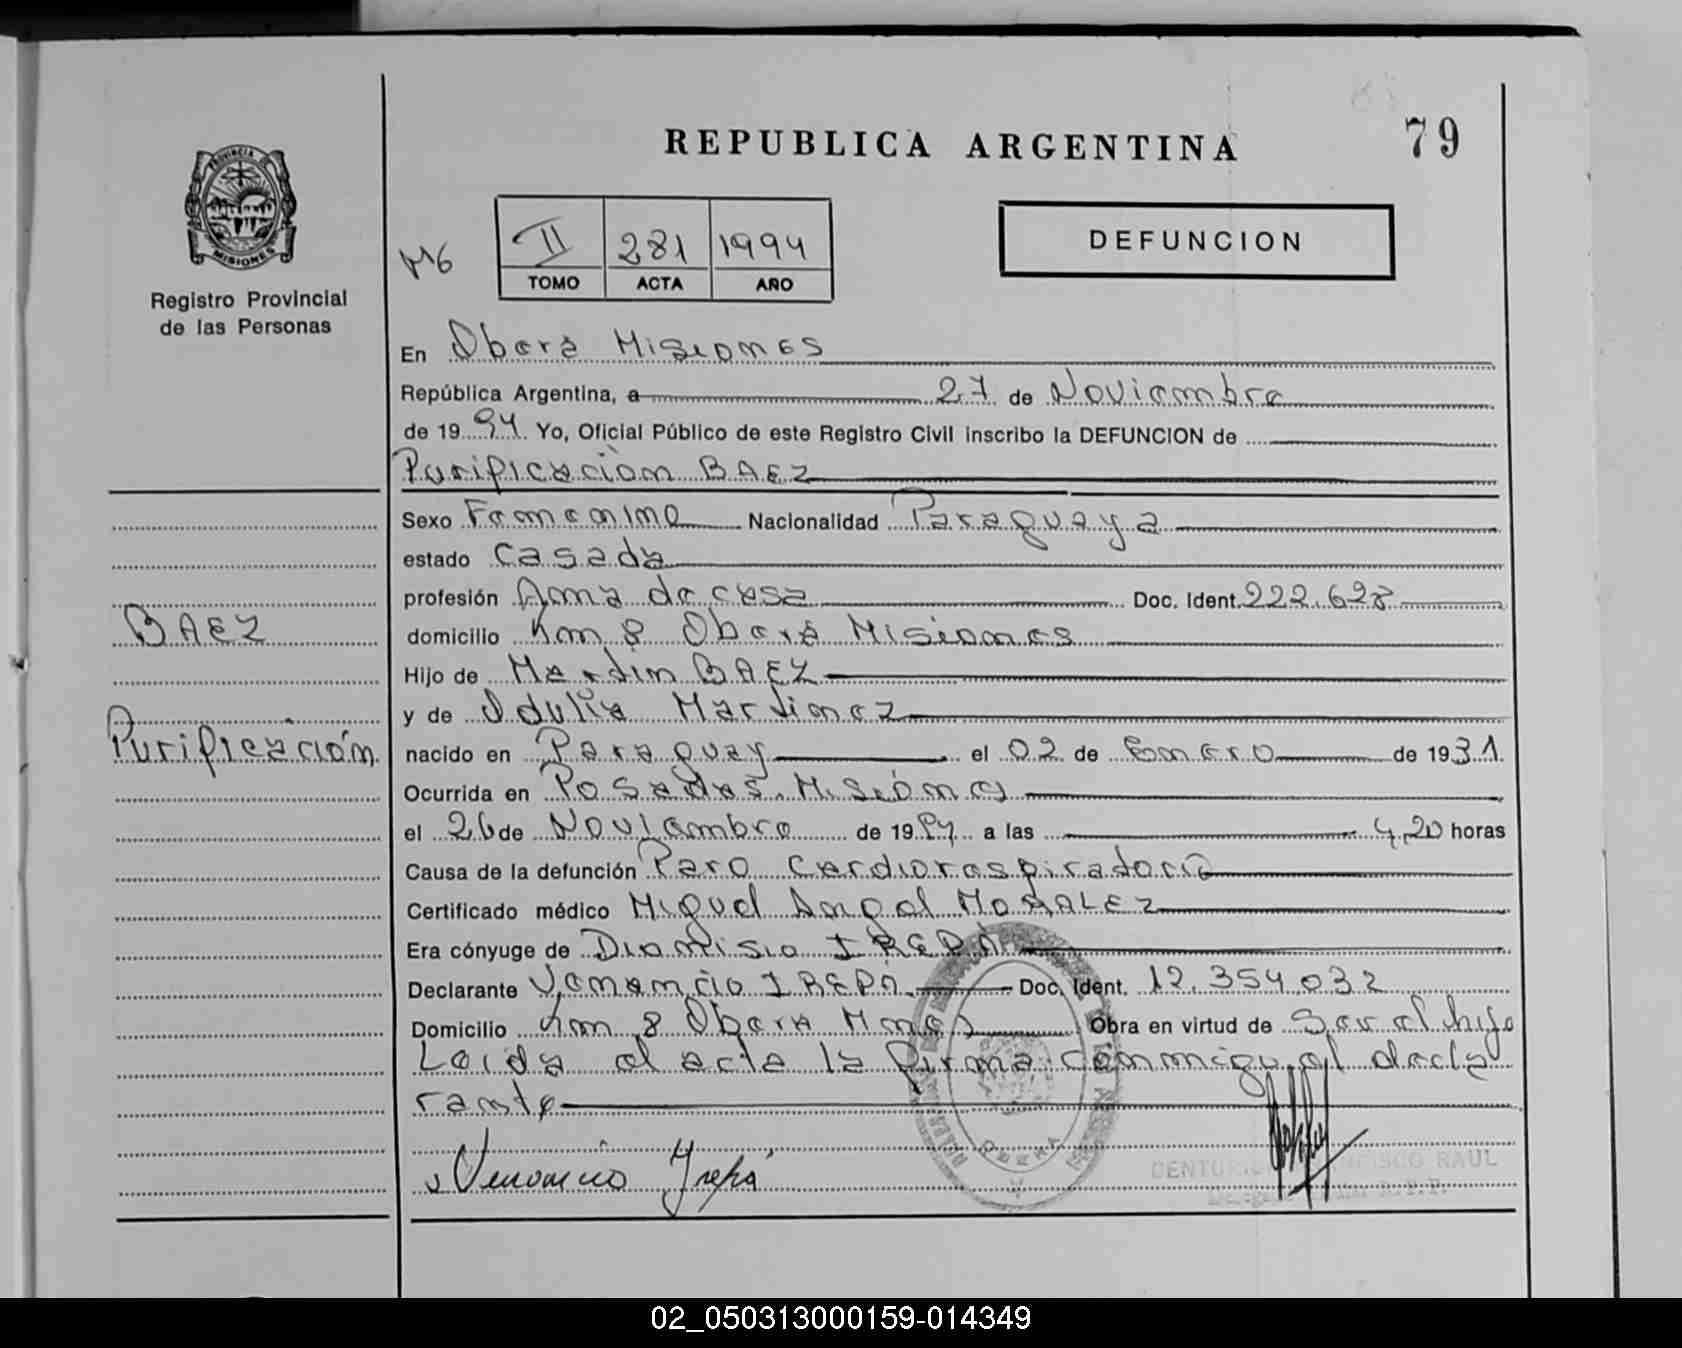 REPUBLICA ARGENTINA
79
PROVINCIA DE
MISIONES
Registro Provincial
de las Personas
II 281 1994
TOMO ACTA AÑO
DEFUNCION
En Oberá Misiones
República Argentina, a 27 de Noviembre
de 1994. Yo, Oficial Público de este Registro Civil inscribo la DEFUNCION de
Purificación BAEZ
Sexo Femenino Nacionalidad Paraguaya
estado Casada
profesión Ama de casa Doc. Ident. 222.628
BAEZ
domicilio Km 8 Oberá Misiones
Hijo de Martin BAEZ
y de Odulia Martinez
Purificación
nacido en Paraguay el 02 de Enero de 1931.
Ocurrida en Posadas. Misiones
el 26 de Noviembre de 1994 a las 4,20 horas
Causa de la defunción Paro Cardiorespiratorio
Certificado médico Miguel Angel MORALEZ
Era cónyuge de Dionisio IREPA
Declarante Venancio IREPA. Doc. Ident. 12.354.032
Domicilio Km 8 Oberá Mnes Obra en virtud de Ser el hijo
Leida el acta la firma conmigo el decla
rante
Venancio Irepa
OBERA
RAUL
02_050313000159-014349